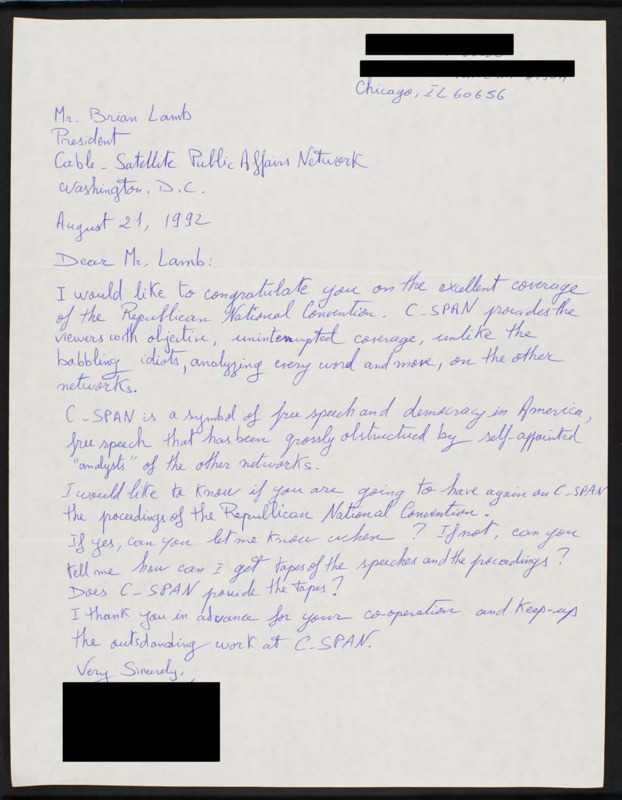 Chicago, IL 60656
Mr. Brian Lamb
President
Cable-Satellite Public Affairs Network
Washington, D.C.
August 21, 1992
Dear Mr. Lamb:
I would like to congratulate you on the excellent coverage
of the Republican National Convention. C-SPAN provides the
viewers with objective, uninterrupted coverage, unlike the
babbling idiots, analyzing every word and move, on the other
networks.
C-SPAN is a symbol of free speech and democracy in America,
free speech that has been grossly obstructed by self-appointed
"analysts" of the other networks.
I would like to know if you are going to have again on C-SPAN
the proceedings of the Republican National Convention.
If yes, can you let me know when? If not, can you
tell me how can I get tapes of the speeches and the proceedings?
Does C-SPAN provide the tapes?
I thank you in advance for your co-operation and keep-up
the outsdanding work at C-SPAN.
Very Sincerely,